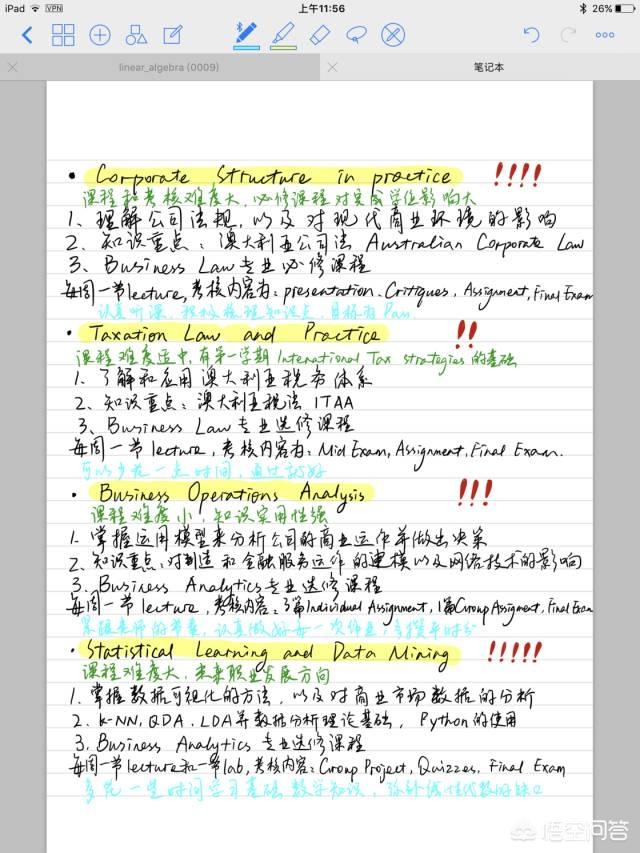 iPad VPN 上午11:56 26%
linear_algebra (0009) 笔记本
• Corporate Structure in practice !!!!
课程和考核难度大，必修课程对完成学位影响大
1、理解公司法规，以及对现代商业环境的影响
2、知识重点：澳大利亚公司法 Australian Corporate Law
3、Business Law专业必修课程
每周一节lecture，考核内容为：presentation、Critiques、Assignment，Final Exam
认真听课，积极梳理知识点，目标为Pass
• Taxation Law and Practice !!
课程难度适中，有第一学期 International Tax strategies的基础
1、了解和应用澳大利亚税务体系
2、知识重点：澳大利亚税法 ITAA
3、Business Law专业选修课程
每周一节lecture，考核内容为：Mid Exam，Assignment，Final Exam.
可以少花一点时间，通过就好
• Business Operations Analysis !!!
课程难度小，知识实用性强
1、掌握运用模型来分析公司的商业运作并做出决策
2、知识重点：对制造和金融服务运作的建模以及网络技术的影响
3、Business Analytics专业选修课程
每周一节lecture，考核内容：3篇Individual Assignment，1篇Group Assigment，Final Exam
老师的节奏，认真做好每一次作业，多拿平时分
• Statistical Learning and Data Mining !!!!!
课程难度大，未来职业发展方向
1、掌握数据可视化的方法，以及对商业市场数据的分析
2、k-NN，QDA，LDA等数据分析理论基础，Python的使用
3、Business Analytics 专业选修课程
每周一节lecture和一节lab，考核内容：Group Project，Quizzes，Final Exam
多花一些时间学习基础数学知识，弥补线性代数的缺口
悟空问答